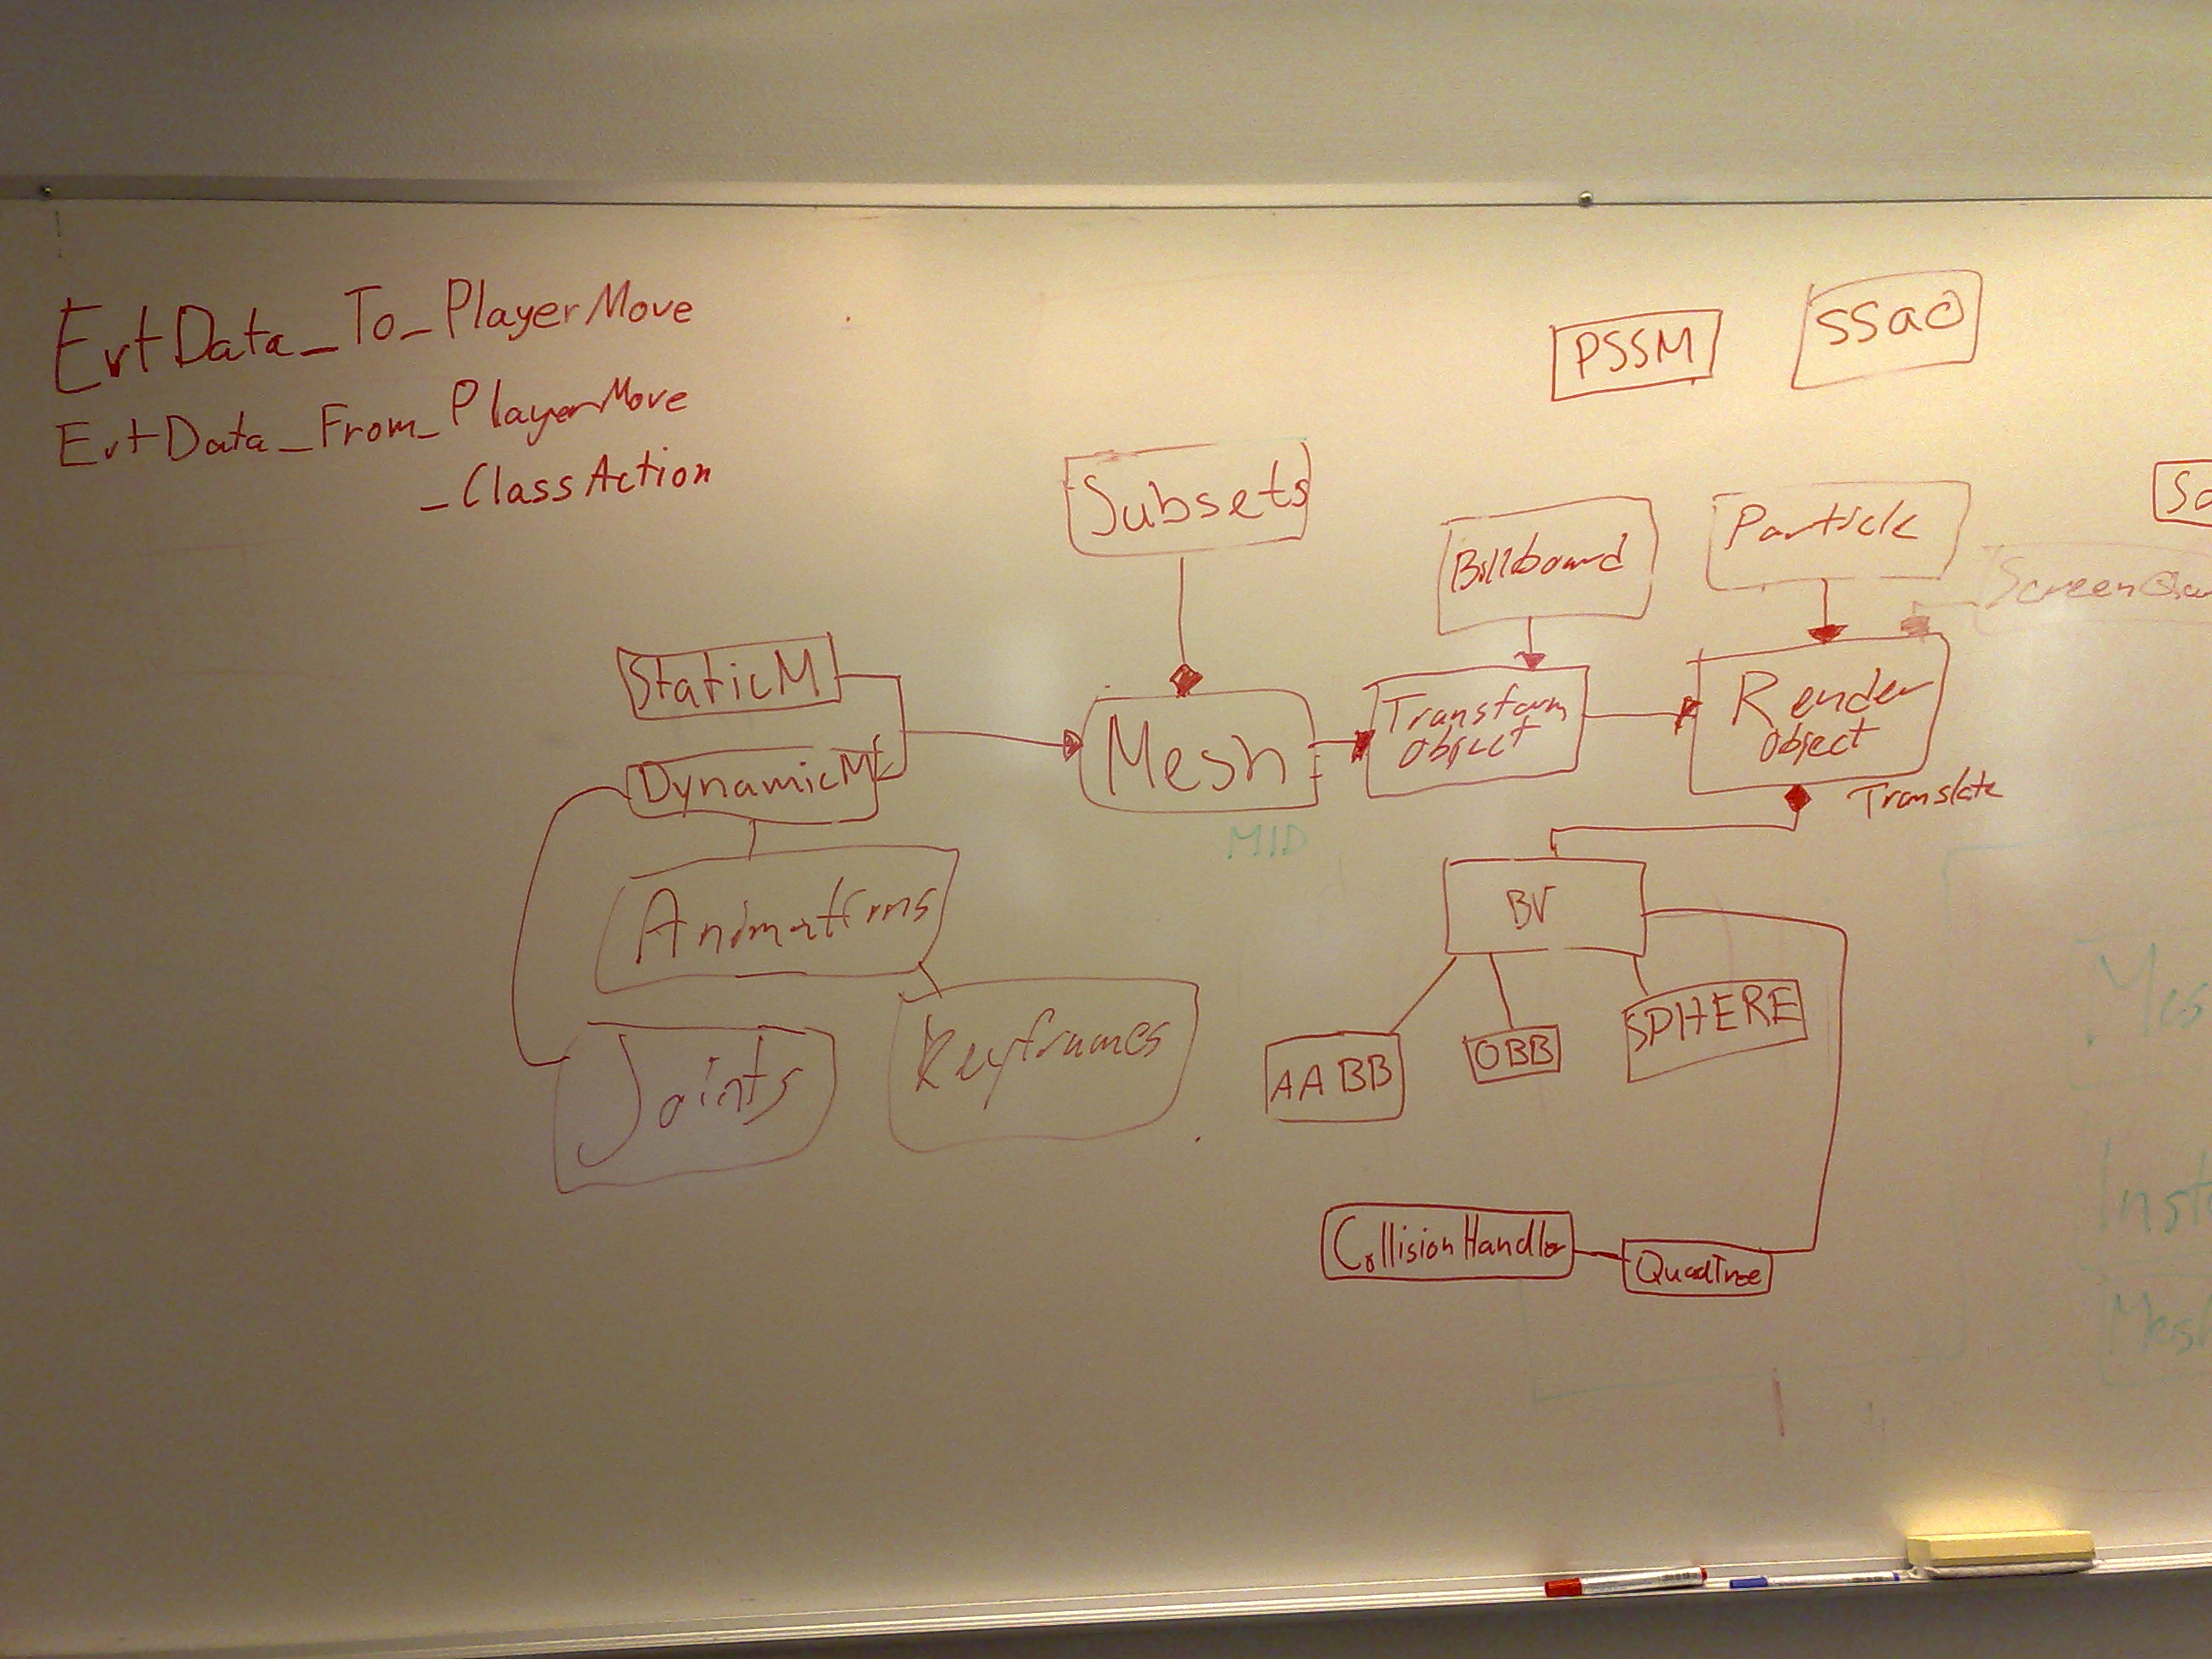 EvtData_To_PlayerMove
EvtData_From_PlayerMove
_ClassAction
PSSM
SSAO
Subsets
Billboard
Particle
StaticM
DynamicM
Mesh
Transform
Object
Render
Object
Translate
MID
Animations
BV
Keyframes
Joints
AABB
OBB
SPHERE
CollisionHandler
QuadTree